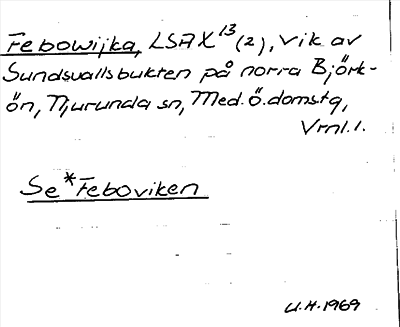 Febowijka, LSAX¹³(2), vik av
Sundsvallsbukten på norra Björk-
ön, Njurunda sn, Med.ö.domstg,
Vrnl.l.
Se *Feboviken
U.H. 1969